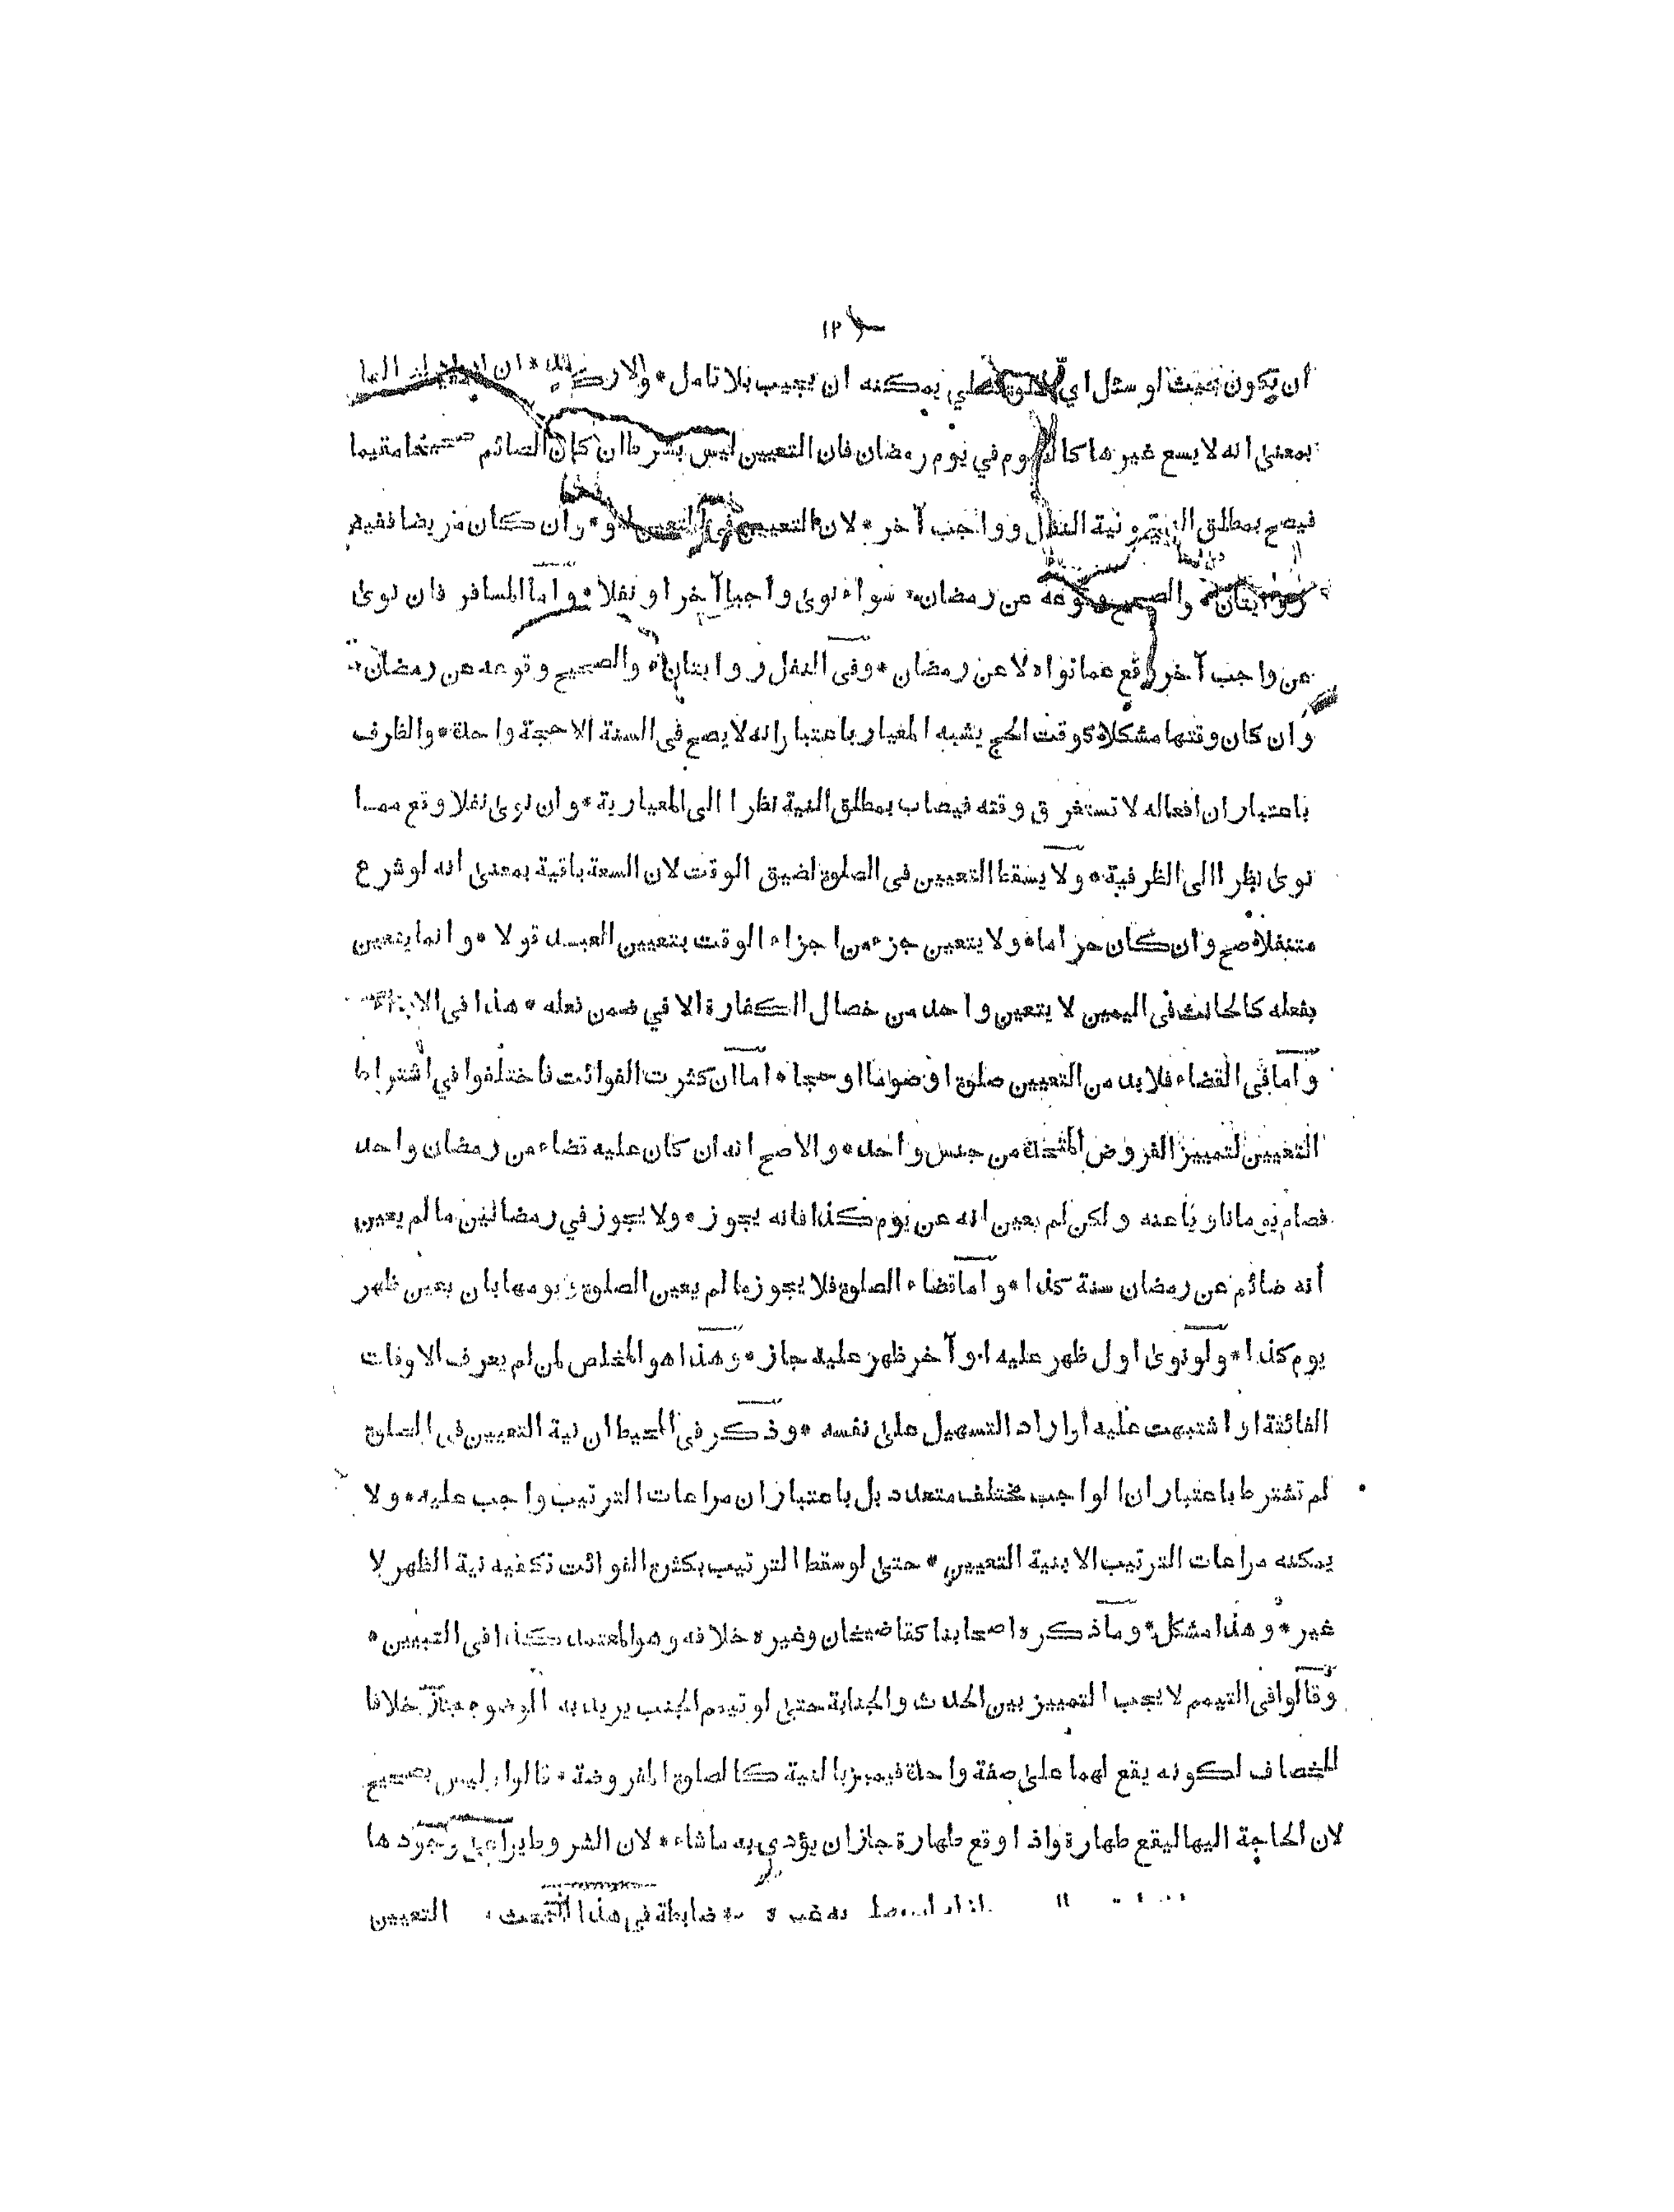 ١٢
ان يكون بحيث لو سئل اي صلوة تصلي يمكنه ان يجيب بلا تامل * والا ان
بمعنى انه لا يسع غيرها كالصوم في يوم رمضان فان التعيين ليس بشرط ان كان الصائم صحيحا مقيما
فيصح بمطلق النية ونية النفل وواجب آخر * لان التعيين في المتعين لغو * وان كان مريضا ففيه
روايتان * والصحيح وقوعه عن رمضان * سواء نوى واجبا آخر او نفلا * واما المسافر فان نوى
عن واجب آخر وقع عما نواه لا عن رمضان * وفى النفل روايتان * والصحيح وقوعه عن رمضان *
وان كان وقتها مشكلا كوقت الحج يشبه المعيار باعتبار انه لا يصح فى السنة الا حجة واحدة * والظرف
باعتبار ان افعاله لا تستغرق وقته فيصاب بمطلق النية نظرا الى المعيارية * وان نوى نفلا وقع عما
نوى نظرا الى الظرفية * ولا يسقط التعيين فى الصلوة لضيق الوقت لان السعة باقية بمعنى انه لو شرع
متنفلا صح وان كان حراما * ولا يتعين جزء من اجزاء الوقت بتعيين العبد قولا * وانما يتعين
بفعله كالحانث فى اليمين لا يتعين واحد من خصال الكفارة الا في ضمن فعله * هذا فى الاداء
واما فى القضاء فلا بد من التعيين صلوة او صوما او حجا * اما ان كثرت الفوائت فاختلفوا في اشتراط
التعيين لتمييز الفروض المتحدة من جنس واحد * والاصح انه ان كان عليه قضاء من رمضان واحد
فصام يوما ناويا عنه ولكن لم يعين انه عن يوم كذا فانه يجوز * ولا يجوز في رمضانين ما لم يعين
انه صائم عن رمضان سنة كذا * واما قضاء الصلوة فلا يجوز ما لم يعين الصلوة ويومها بان يعين ظهر
يوم كذا * ولو نوى اول ظهر عليه او آخر ظهر عليه جاز * وهذا هو المخلص لمن لم يعرف الاوقات
الفائتة او اشتبهت عليه او اراد التسهيل على نفسه * وذكر فى المحيط ان نية التعيين فى الصلوة
لم تشترط باعتبار ان الواجب مختلف متعدد بل باعتبار ان مراعات الترتيب واجب عليه * ولا
يمكنه مراعات الترتيب الا بنية التعيين * حتى لو سقط الترتيب بكثرة الفوائت تكفيه نية الظهر لا
غير * وهذا مشكل * وما ذكره اصحابنا كقاضيخان وغيره خلافه وهو المعتمد كذا فى التبيين *
وقالوا فى التيمم لا يجب التمييز بين الحدث والجنابة حتى لو تيمم الجنب يريد به الوضوء جاز خلافا
للخصاف لكونه يقع لهما على صفة واحدة فيميز بالنية كالصلوة المفروضة * قالوا وليس بصحيح
لان الحاجة اليها ليقع طهارة واذا وقع طهارة جاز ان يؤدي به ما شاء * لان الشروط يراعى وجودها
ضابطة في هذا المبحث * التعيين